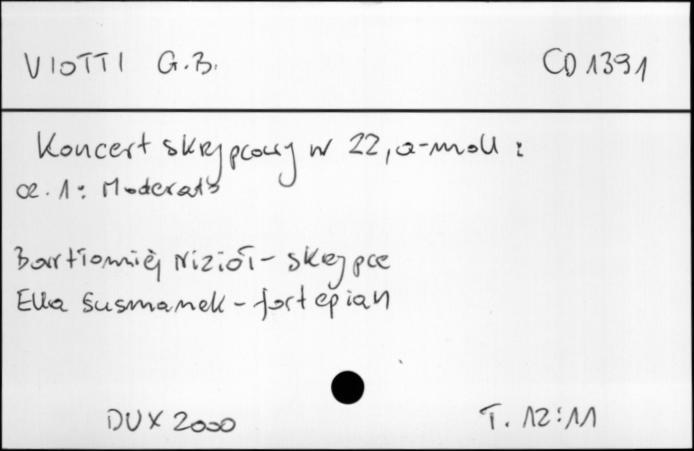 VIOTTI G.B. CD 1391
Koncert skrzypcowy nr 22, a-moll :
cz. 1: Moderato
Bartłomiej Nizioł - skrzypce
Ella Susmanek - fortepian
DUX 2000 T. 12:11